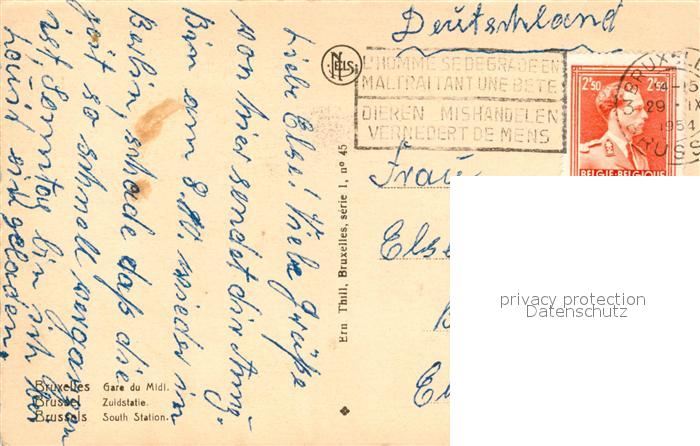 Deutschland
L'HOMME SE DEGRADE EN
MALTRAITANT UNE BETE
DIEREN MISHANDELEN
VERNEDERT DE MENS
BRUXELLE
14-15
29 - IX
1954
BRUSS
2F50 2F50
BELGIE-BELGIQUE
NELS
Frau
Else
privacy protection
Datenschutz
Ern Thill, Bruxelles, série 1, nº 45
Liebe Else! Viele Grüße
von hier sendet dir
Bin am 8. wieder in
Berlin, schade daß die
Zeit so schnell vergangen
ist Sonntag bin ich bei
eingeladen.
Bruxelles Gare du Midi.
Brussel Zuidstatie.
Brussels South Station.